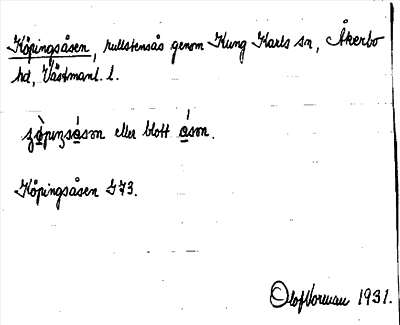 Köpingsåsen, rullstensås genom Kung Karls sn, Åkerbo
hd, Västmanl. l.
eller blott
Köpingsåsen J73.
Olof Vorman 1931.